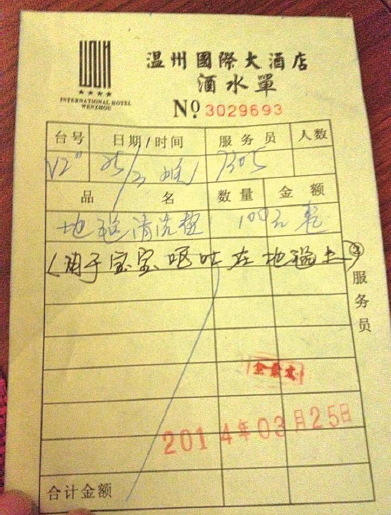 温州國際大酒店
酒水單
INTERNATIONAL HOTEL
WENZHOU
№ 3029693
台号 日期/时间 服务员 人数
V2 25/3 晚 7305
品名 数量 金额
地毯清洗费 100元整
(用于宝宝呕吐在地毯上)
③服务员
2014年03月25日
合计金额